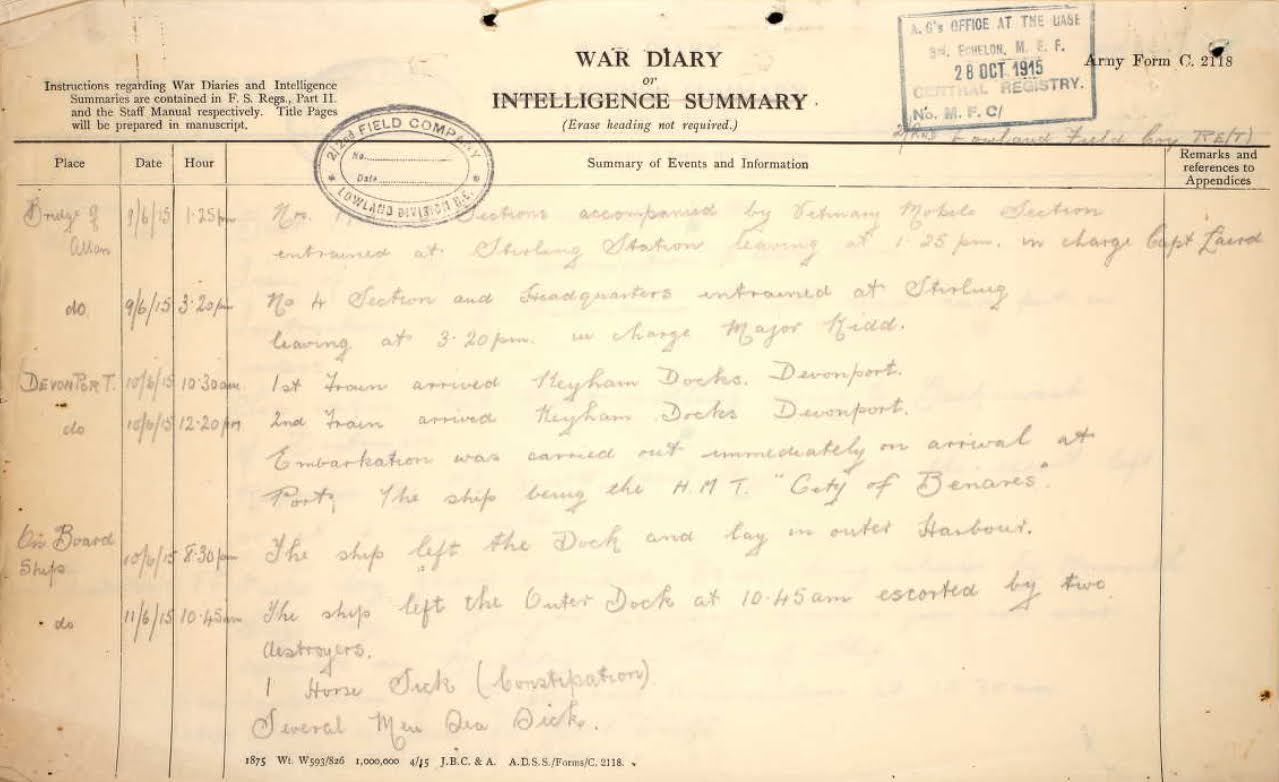 WAR DIARY
or
INTELLIGENCE SUMMARY.
(Erase heading not required.)
Instructions regarding War Diaries and Intelligence
Summaries are contained in F. S. Regs., Part II.
and the Staff Manual respectively. Title Pages
will be prepared in manuscript.
A. G's OFFICE AT THE BASE
3rd. ECHELON, M. E. F.
28 OCT 1915
CENTRAL REGISTRY.
No. M. F. C/
Army Form C. 2118
2/2nd Lowland Field Coy RE(T)
2/2nd FIELD COMPANY
No.
Date
LOWLAND DIVISION R.E.
Place Date Hour Summary of Events and Information Remarks and references to Appendices
Bridge of Allan 9/6/15 1·25pm Nos. Sections accompanied by Vetinary Mobile Section
entrained at Stirling Station leaving at 1·25 pm. in charge Capt Laird
do 9/6/15 3·20pm No 4 Section and Headquarters entrained at Stirling
leaving at 3·20pm. in charge Major Kidd.
DEVONPORT. 10/6/15 10·30am 1st Train arrived Keyham Docks. Devonport.
do 10/6/15 12·20pm 2nd Train arrived Keyham Docks Devonport.
Embarkation was carried out immediately on arrival at
Port, The ship being the H.M.T. "City of Benares".
On Board Ship 10/6/15 8·30pm The ship left the Dock and lay in outer Harbour.
do 11/6/15 10·45am The ship left the Outer Dock at 10·45am escorted by two
destroyers.
1 Horse Sick (Constipation)
Several Men Sea Sick.
1875 Wt. W593/826 1,000,000 4/15 J.B.C. & A. A.D.S.S./Forms/C. 2118.